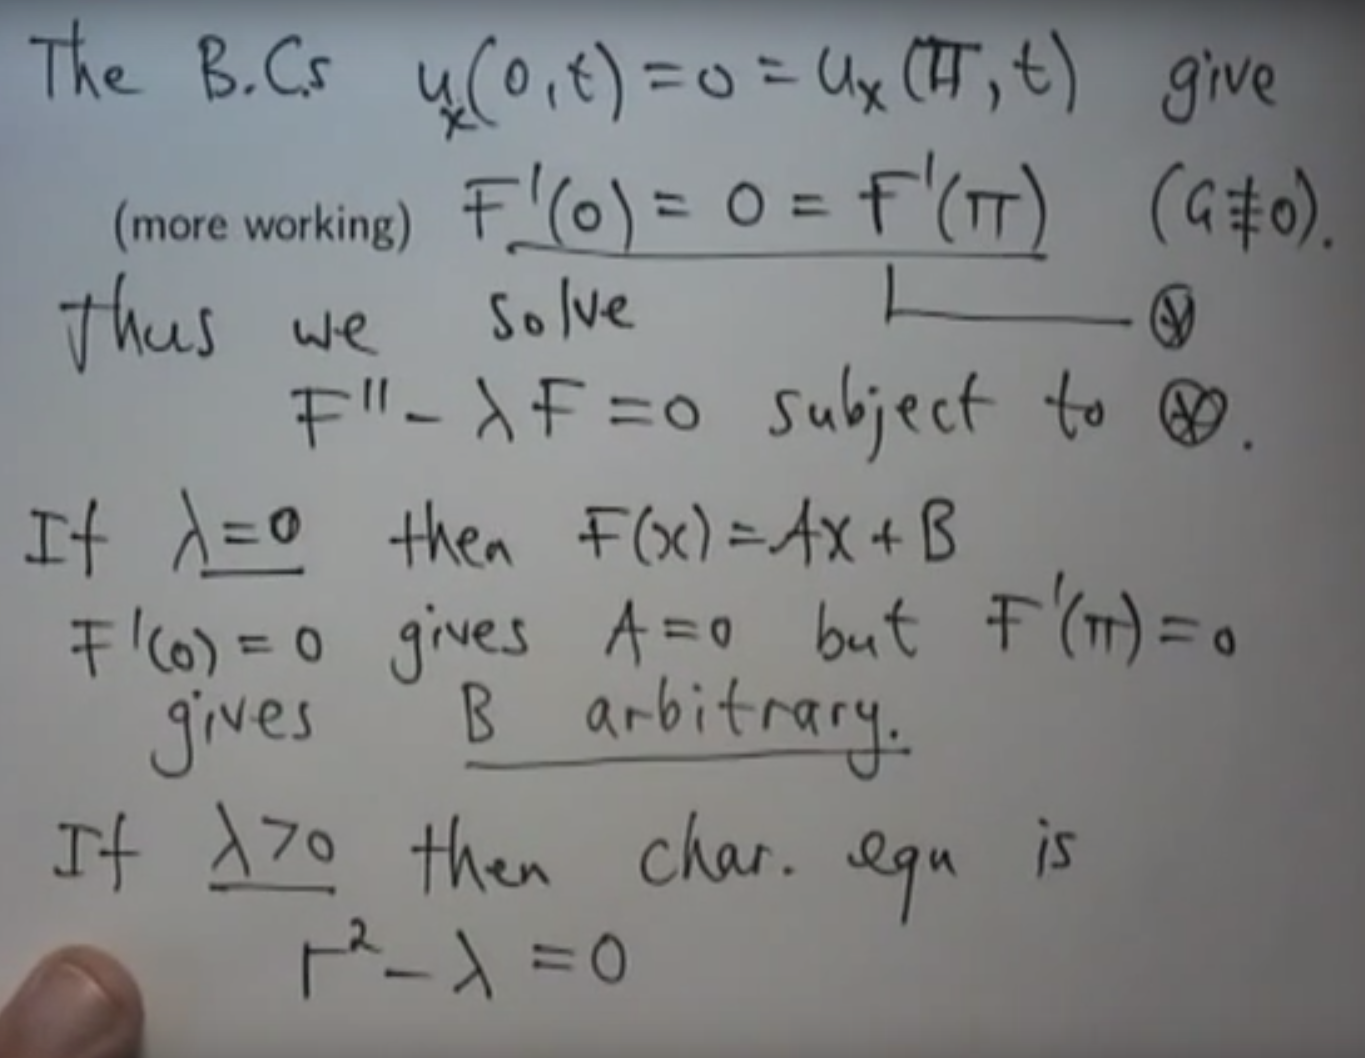 The B.Cs uₓ(0,t) = 0 = uₓ(π,t) give
(more working) F'(0) = 0 = F'(π) (G≢0).
Thus we solve ⊛
F'' - λF = 0 subject to ⊛.
If λ=0 then F(x) = Ax + B
F'(0) = 0 gives A = 0 but F'(π) = 0
gives B arbitrary.
If λ>0 then char. equ is
r² - λ = 0